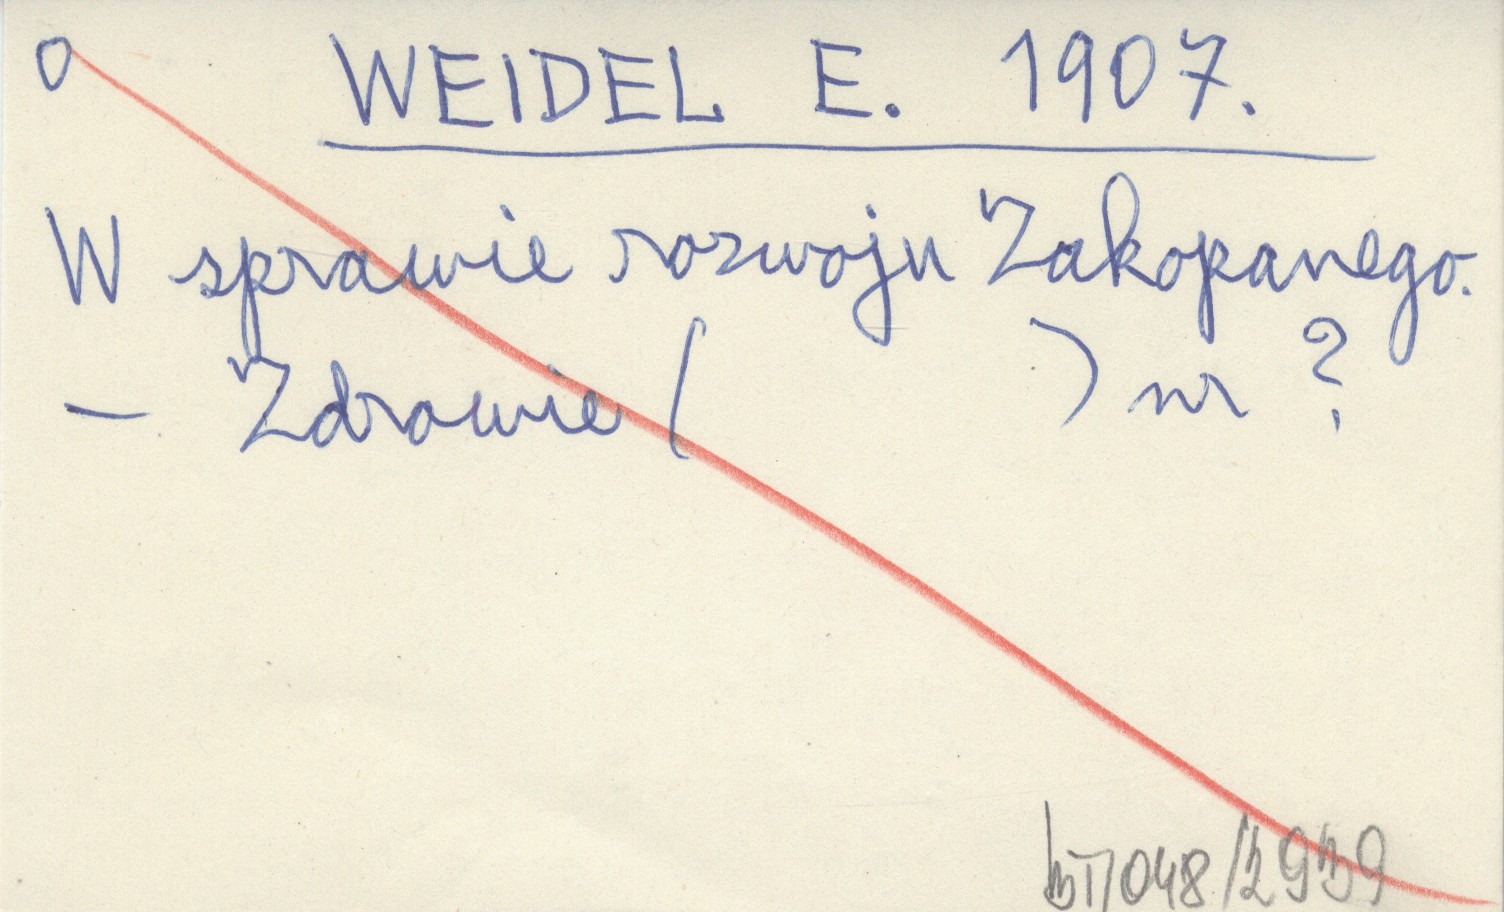 O WEIDEL E. 1907.
W sprawie rozwoju Zakopanego.
— Zdrowie ( ) nr ?